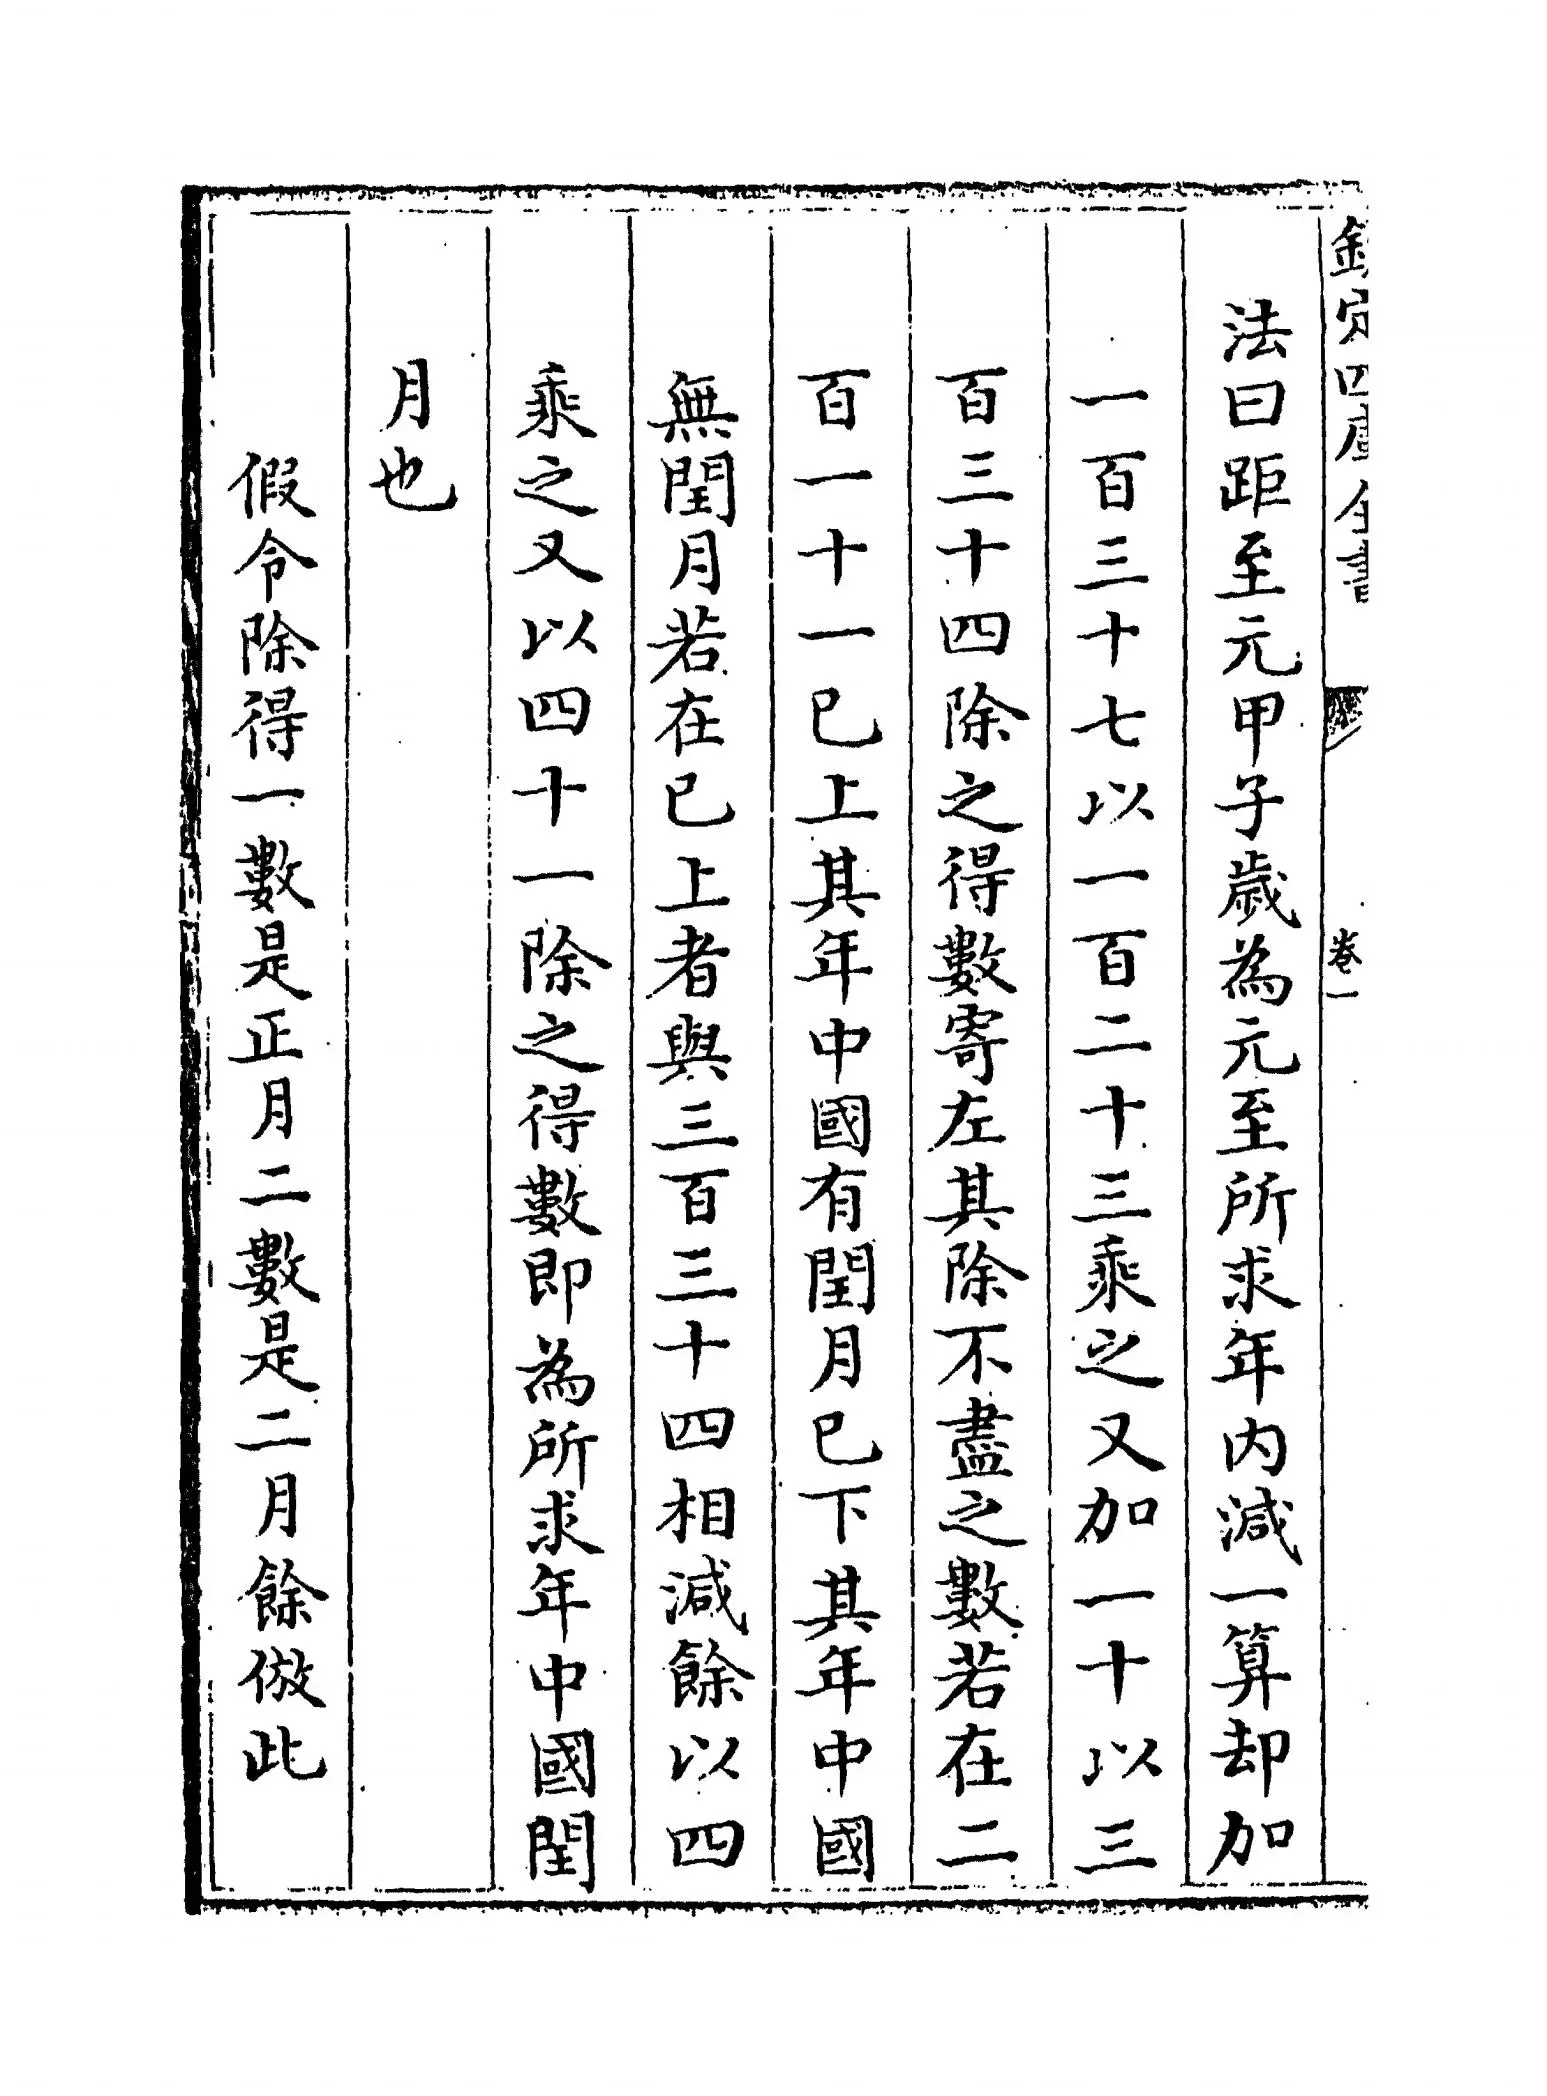 欽定四庫全書
卷一
法曰距至元甲子歲為元至所求年内減一算却加
一百三十七以一百二十三乘之又加一十以三
百三十四除之得數寄左其除不盡之數若在二
百一十一已上其年中國有閏月已下其年中國
無閏月若在已上者與三百三十四相減餘以四
乘之又以四十一除之得數即為所求年中國閏
月也
假令除得一數是正月二數是二月餘倣此